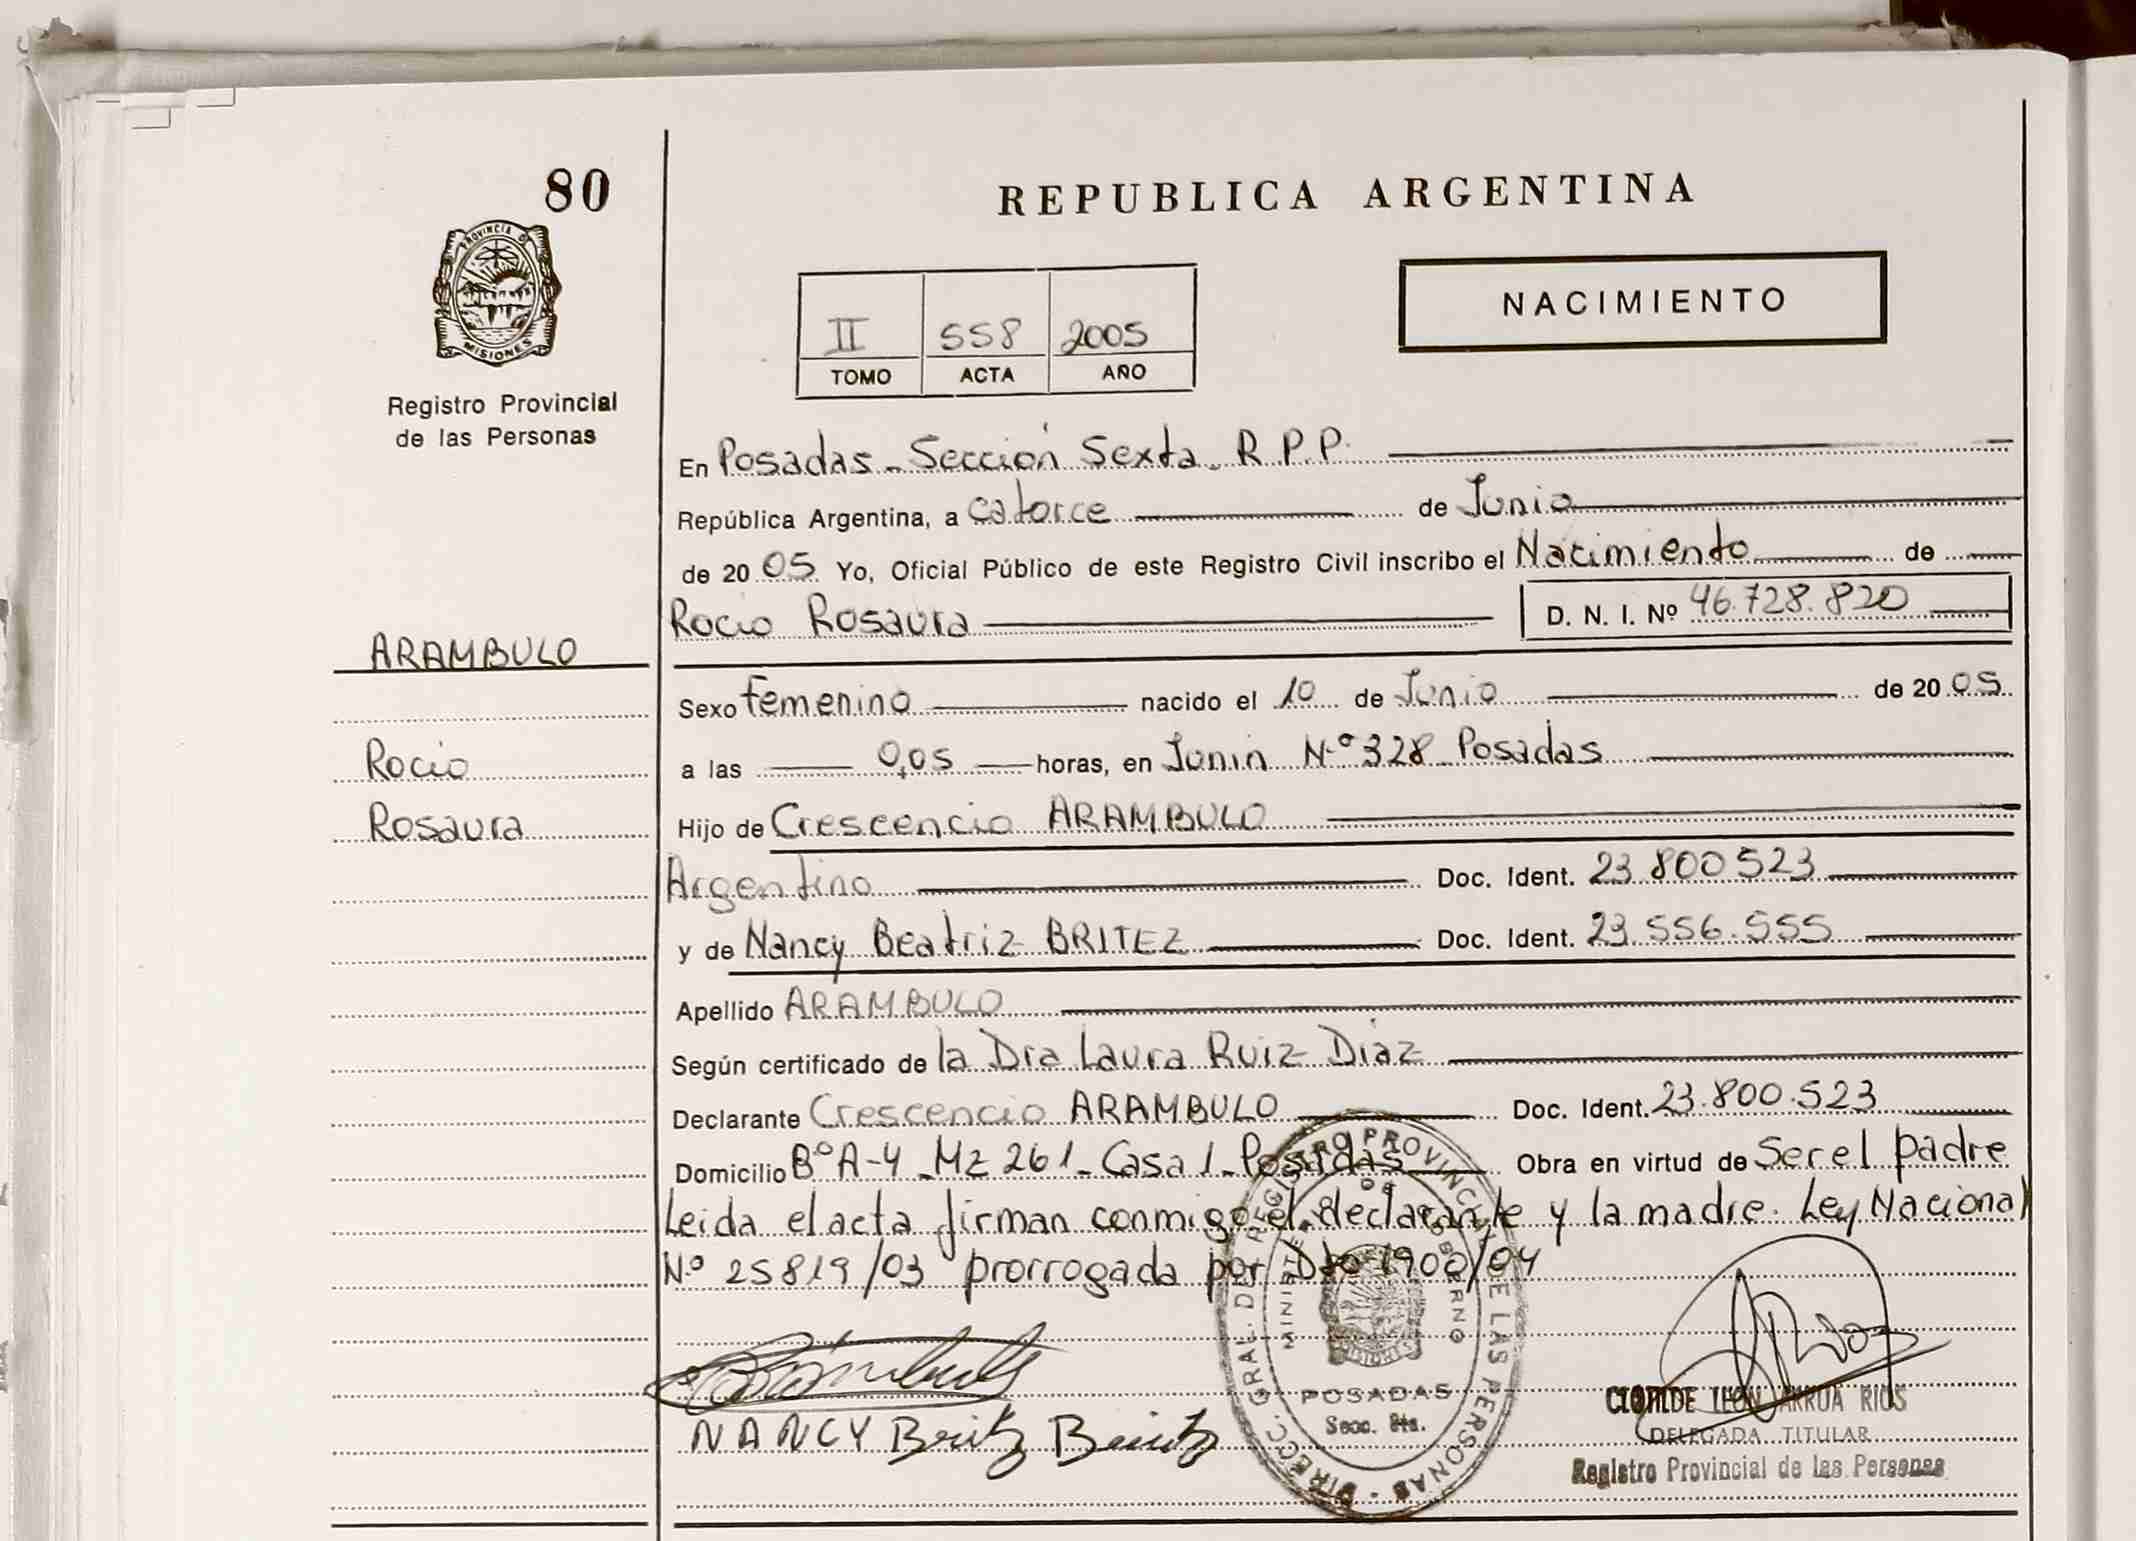 80
PROVINCIA DE
MISIONES
Registro Provincial
de las Personas
ARAMBULO
Rocio
Rosaura
REPUBLICA ARGENTINA
NACIMIENTO
II 558 2005
TOMO ACTA AÑO
En Posadas - Sección Sexta. R.P.P.
República Argentina, a catorce de Junio
de 2005 Yo, Oficial Público de este Registro Civil inscribo el Nacimiento de
Rocio Rosaura D. N. I. Nº 46.728.820
Sexo Femenino nacido el 10 de Junio de 2005
a las 0,05 horas, en Junin Nº 328 Posadas
Hijo de Crescencio ARAMBULO
Argentino Doc. Ident. 23.800.523
y de Nancy Beatriz BRITEZ Doc. Ident. 23.556.555
Apellido ARAMBULO
Según certificado de la Dra Laura Ruiz Diaz
Declarante Crescencio ARAMBULO Doc. Ident. 23.800.523
Domicilio Bº A-4 - Mz 261 - Casa 1 - Posadas Obra en virtud de Ser el padre
Leida el acta firman conmigo el declarante y la madre. Ley Nacional
N.º 25819/03 prorrogada por Dto 1900/04
NANCY Britez
DIRECC. GRAL. DE REGISTRO PROVINCIAL DE LAS PERSONAS
MINISTERIO DE GOBIERNO
MISIONES
POSADAS
Secc. 6ta.
ARRUA RIOS
DELEGADA TITULAR
Registro Provincial de las Personas